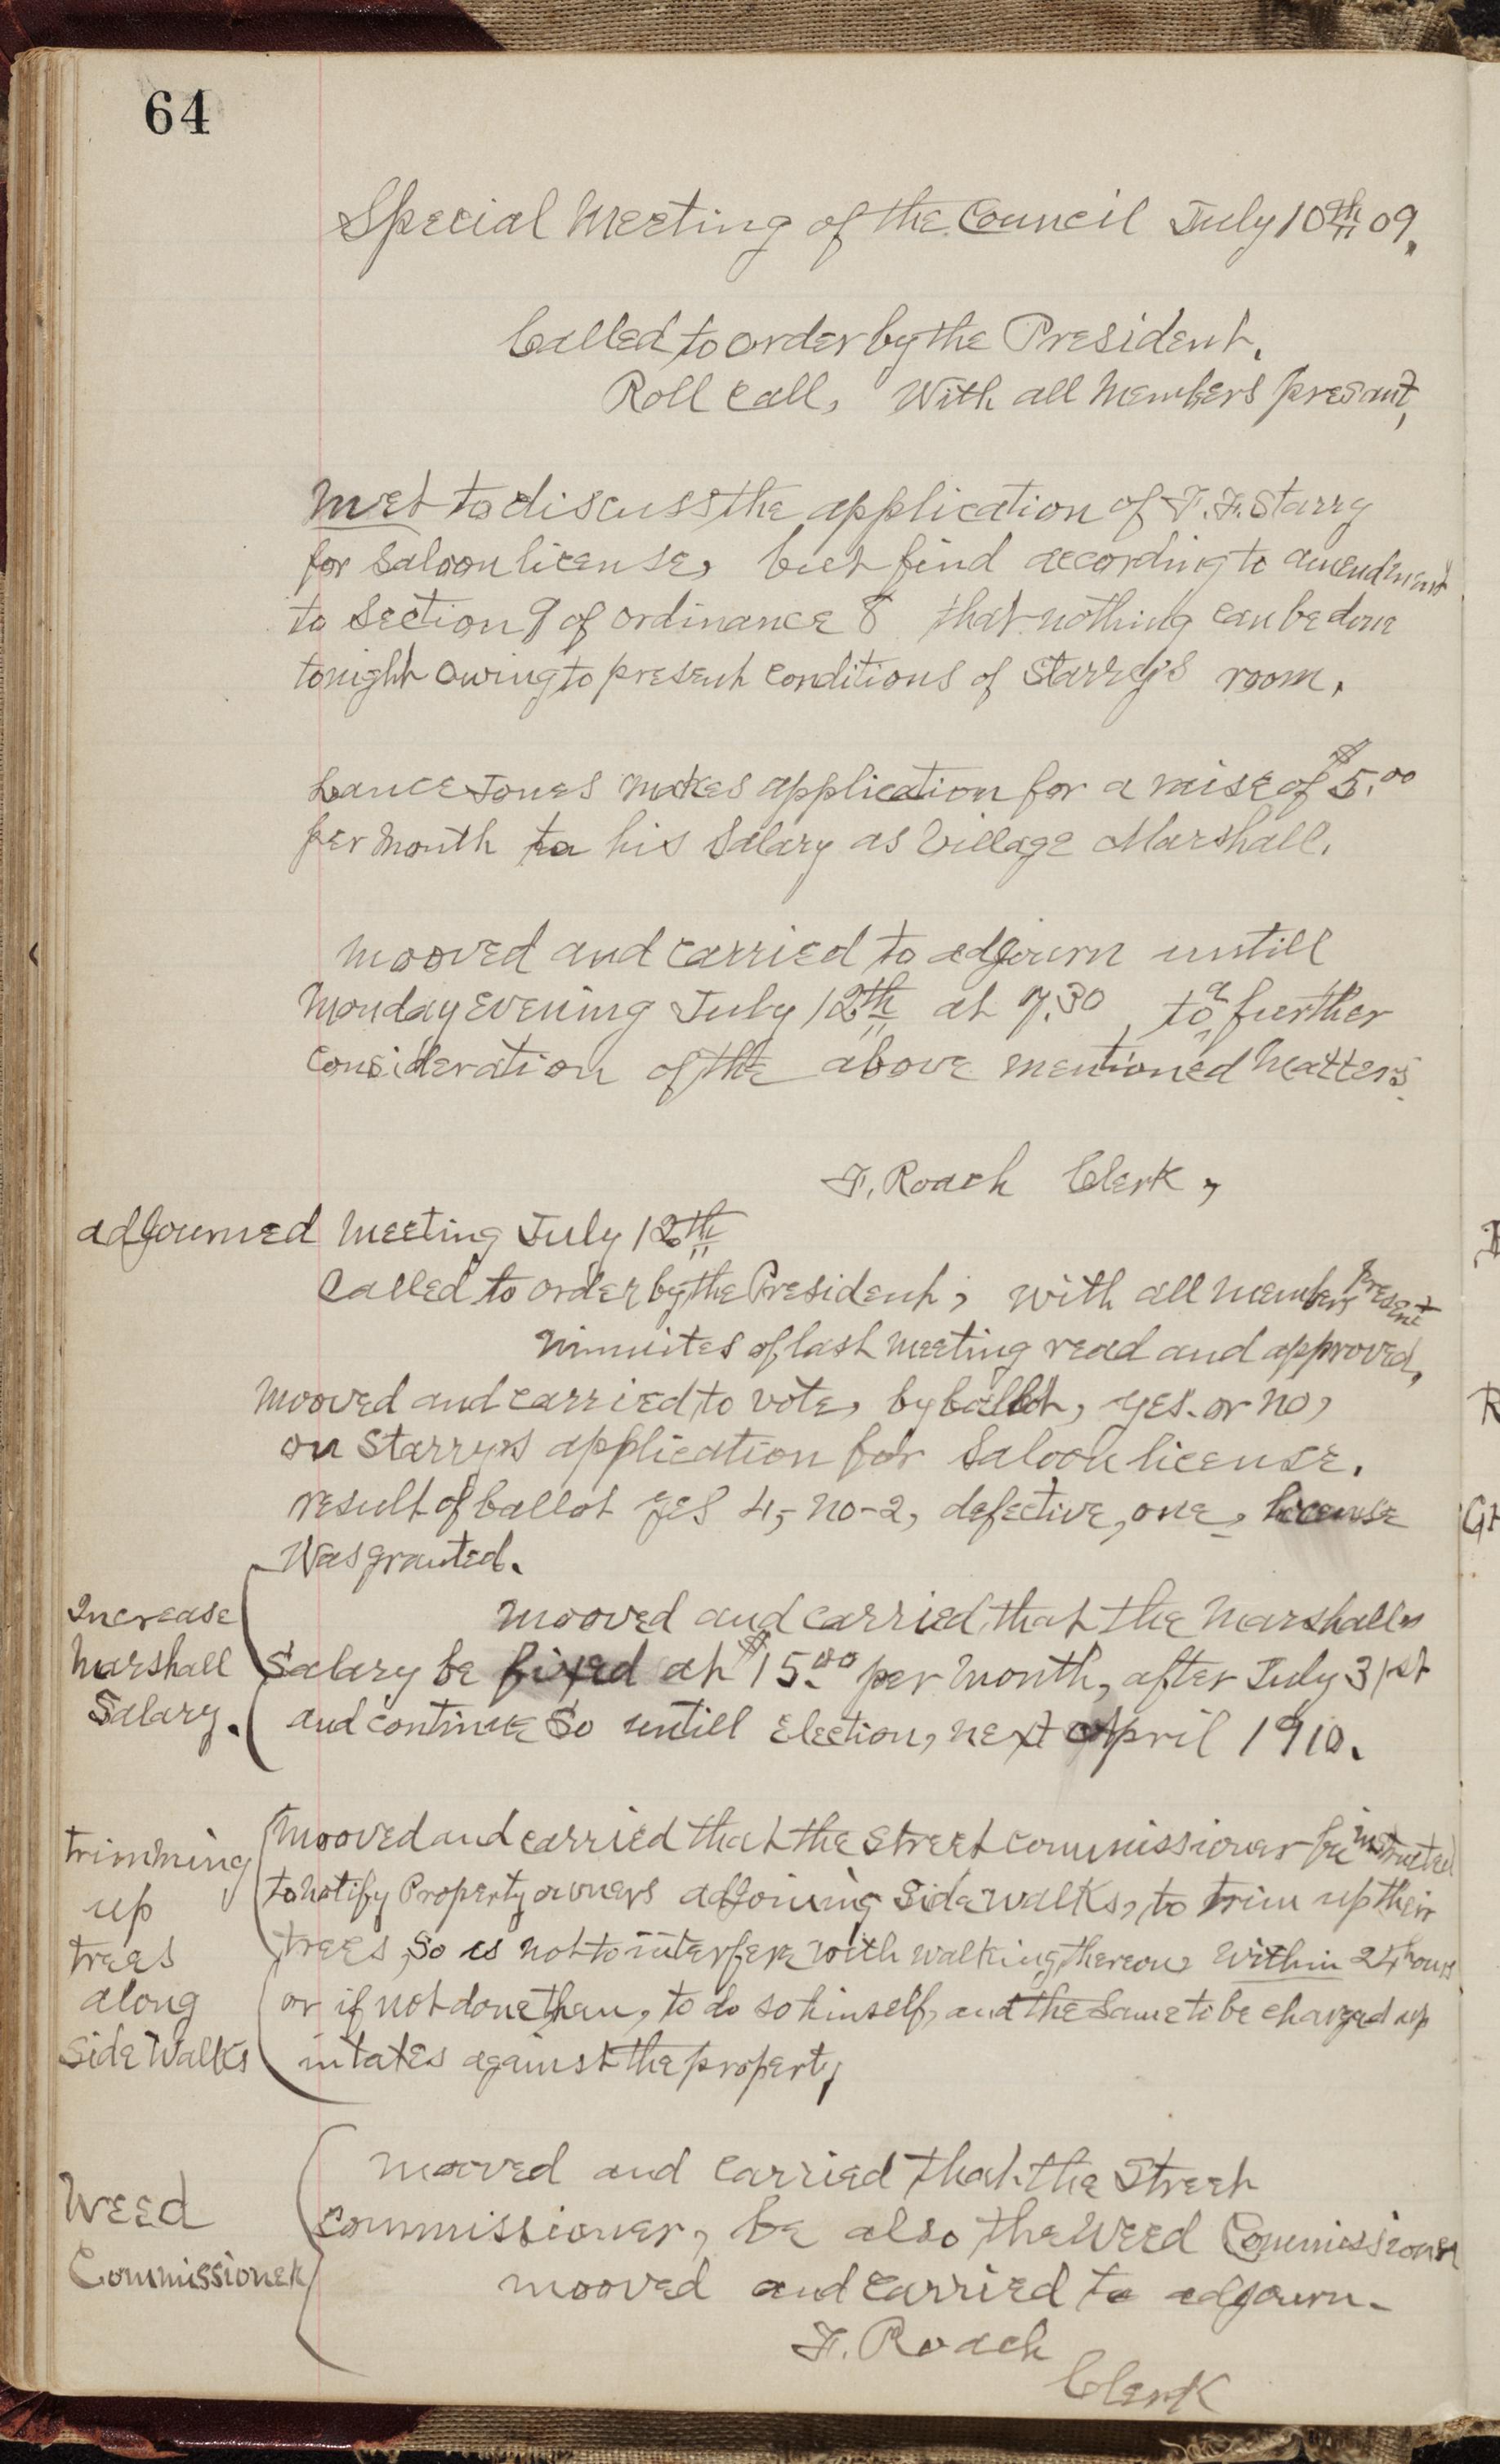 64
Special Meeting of the Council July 10th 09.
Called to order by the President.
Roll call, With all Members presant,
Met to discuss the application of F. F. Starry
for Saloon license, but find according to amendment
to Section 9 of ordinance 8 that nothing can be done
tonight owing to present conditions of Starry's room.
Lance Jones makes application for a raise of $5.00
per month to his Salary as Village Marshall.
Mooved and carried to adjourn untill
Monday Evening July 12th at 7.30, to a further
Consideration of the above mentioned Matters.
F. Roach Clerk,
adjourned Meeting July 12th
Called to order by the President, with all members Present
Minuites of last Meeting read and approved,
Mooved and carried to vote, by ballot, yes. or no,
on Starrys application for Saloon license.
result of ballot yes 4,- no-2, defective, one, license
Was granted.
Increase
Marshall
Salary.
Mooved and carried that the Marshalls
Salary be fixed at $15.00 per month, after July 31st
and continue So untill Election, next April 1910.
trimming
up
trees
along
Side Walks
Mooved and carried that the Street commissioner be instructed
to Notify Property owners adjoining Side walks, to trim up their
trees, So as not to interfere with walking thereon, within 24 hours
or if not done then, to do so himself, and the Same to be charged up
in taxes against the property,
Weed
Commissioner
Mooved and carried that the Street
Commissioner, be also the Weed Commissioner
mooved and carried to adjourn.
F. Roach
Clerk